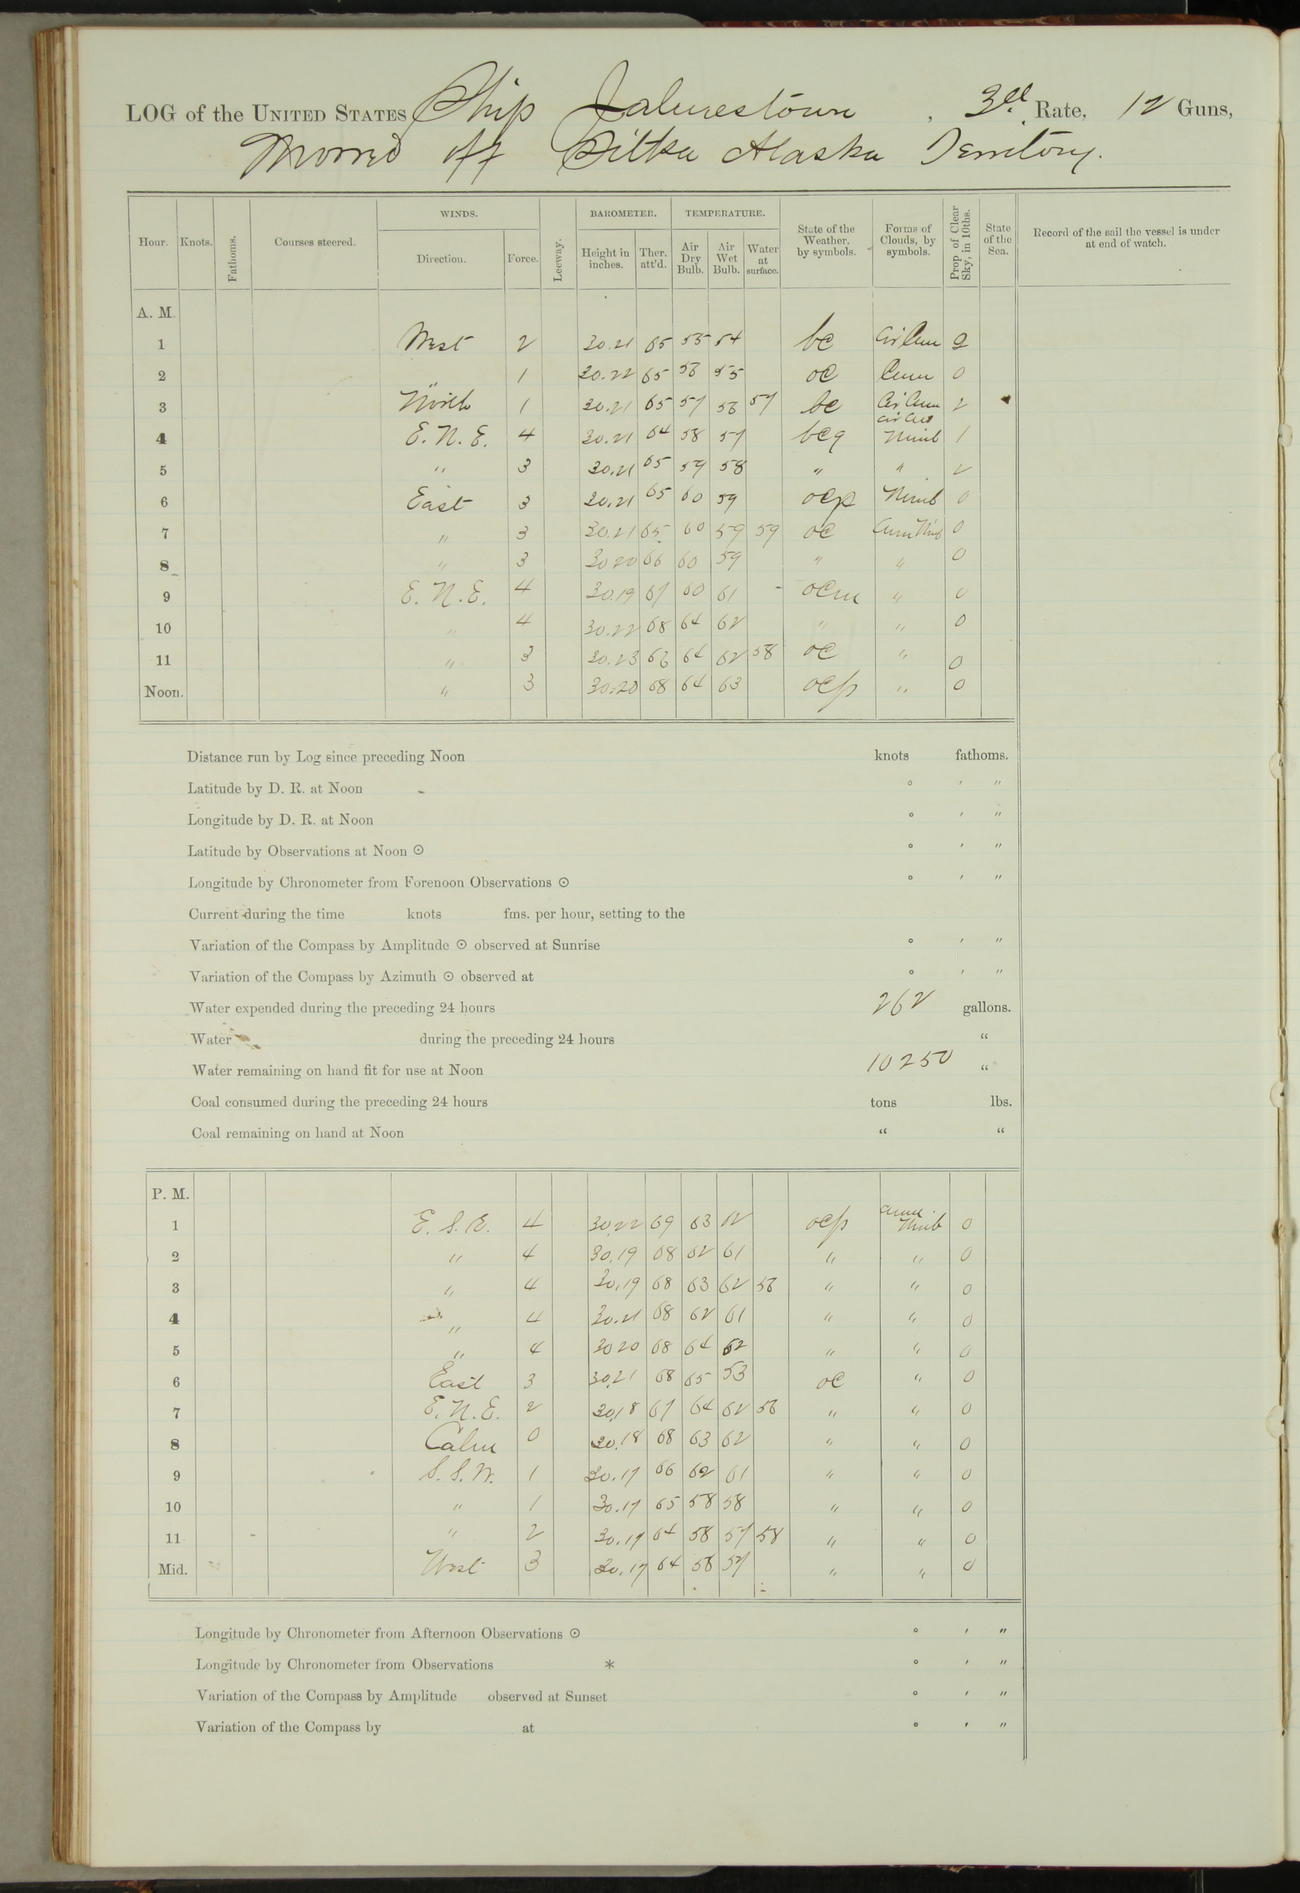 LOG of the UNITED STATES Ship Jamestown, 3rd Rate, 12 Guns,
Moored off Sitka Alaska Territory.
Hour. Knots. Fathoms. Courses steered. WINDS. Direction. Force. Leeway. BAROMETER. Height in inches. Ther. att'd. TEMPERATURE. Air Dry Bulb. Air Wet Bulb. Water at surface. State of the Weather, by symbols. Forms of Clouds, by symbols. Prop. of Clear Sky, in 10ths. State of the Sea. Record of the sail the vessel is under at end of watch.
A. M.
1 West 2 30.21 65 55 54 bc Cir Cum 2
2 " 1 30.22 65 56 55 oc Cum 0
3 North 1 30.21 65 57 56 57 bc Cir Cum 2
4 E. N. E. 4 30.21 64 58 57 bcq Cir Cum Nimb 1
5 " 3 30.21 65 59 58 " " 2
6 East 3 30.21 65 60 59 ocp Nimb 0
7 " 3 30.21 65 60 59 59 oc Cum Nimb 0
8 " 3 30.20 66 60 59 " " 0
9 E. N. E. 4 30.19 67 60 61 ocm " 0
10 " 4 30.22 68 64 62 " " 0
11 " 3 30.23 68 64 62 58 oc " 0
Noon. " 3 30.20 68 64 63 ocp " 0
Distance run by Log since preceding Noon knots fathoms.
Latitude by D. R. at Noon ° ' "
Longitude by D. R. at Noon ° ' "
Latitude by Observations at Noon ☉ ° ' "
Longitude by Chronometer from Forenoon Observations ☉ ° ' "
Current during the time knots fms. per hour, setting to the
Variation of the Compass by Amplitude ☉ observed at Sunrise ° ' "
Variation of the Compass by Azimuth ☉ observed at ° ' "
Water expended during the preceding 24 hours 262 gallons.
Water during the preceding 24 hours "
Water remaining on hand fit for use at Noon 10250 "
Coal consumed during the preceding 24 hours tons lbs.
Coal remaining on hand at Noon " "
P. M.
1 E. S. E. 4 30.22 69 63 62 ocp Cum. Nimb 0
2 " 4 30.19 68 62 61 " " 0
3 " 4 30.19 68 63 62 58 " " 0
4 " 4 30.21 68 62 61 " " 0
5 " 4 30 20 68 64 62 " " 0
6 East 3 30.21 68 65 53 oc " 0
7 E. N. E. 2 30.18 67 64 62 58 " " 0
8 Calm 0 30.18 68 63 62 " " 0
9 S. S. W. 1 30.17 66 62 61 " " 0
10 " 1 30.17 65 58 58 " " 0
11 " 2 30.17 64 58 57 58 " " 0
Mid. West 3 30.17 64 58 57 " " 0
Longitude by Chronometer from Afternoon Observations ☉ ° ' "
Longitude by Chronometer from Observations * ° ' "
Variation of the Compass by Amplitude observed at Sunset ° ' "
Variation of the Compass by at ° ' "